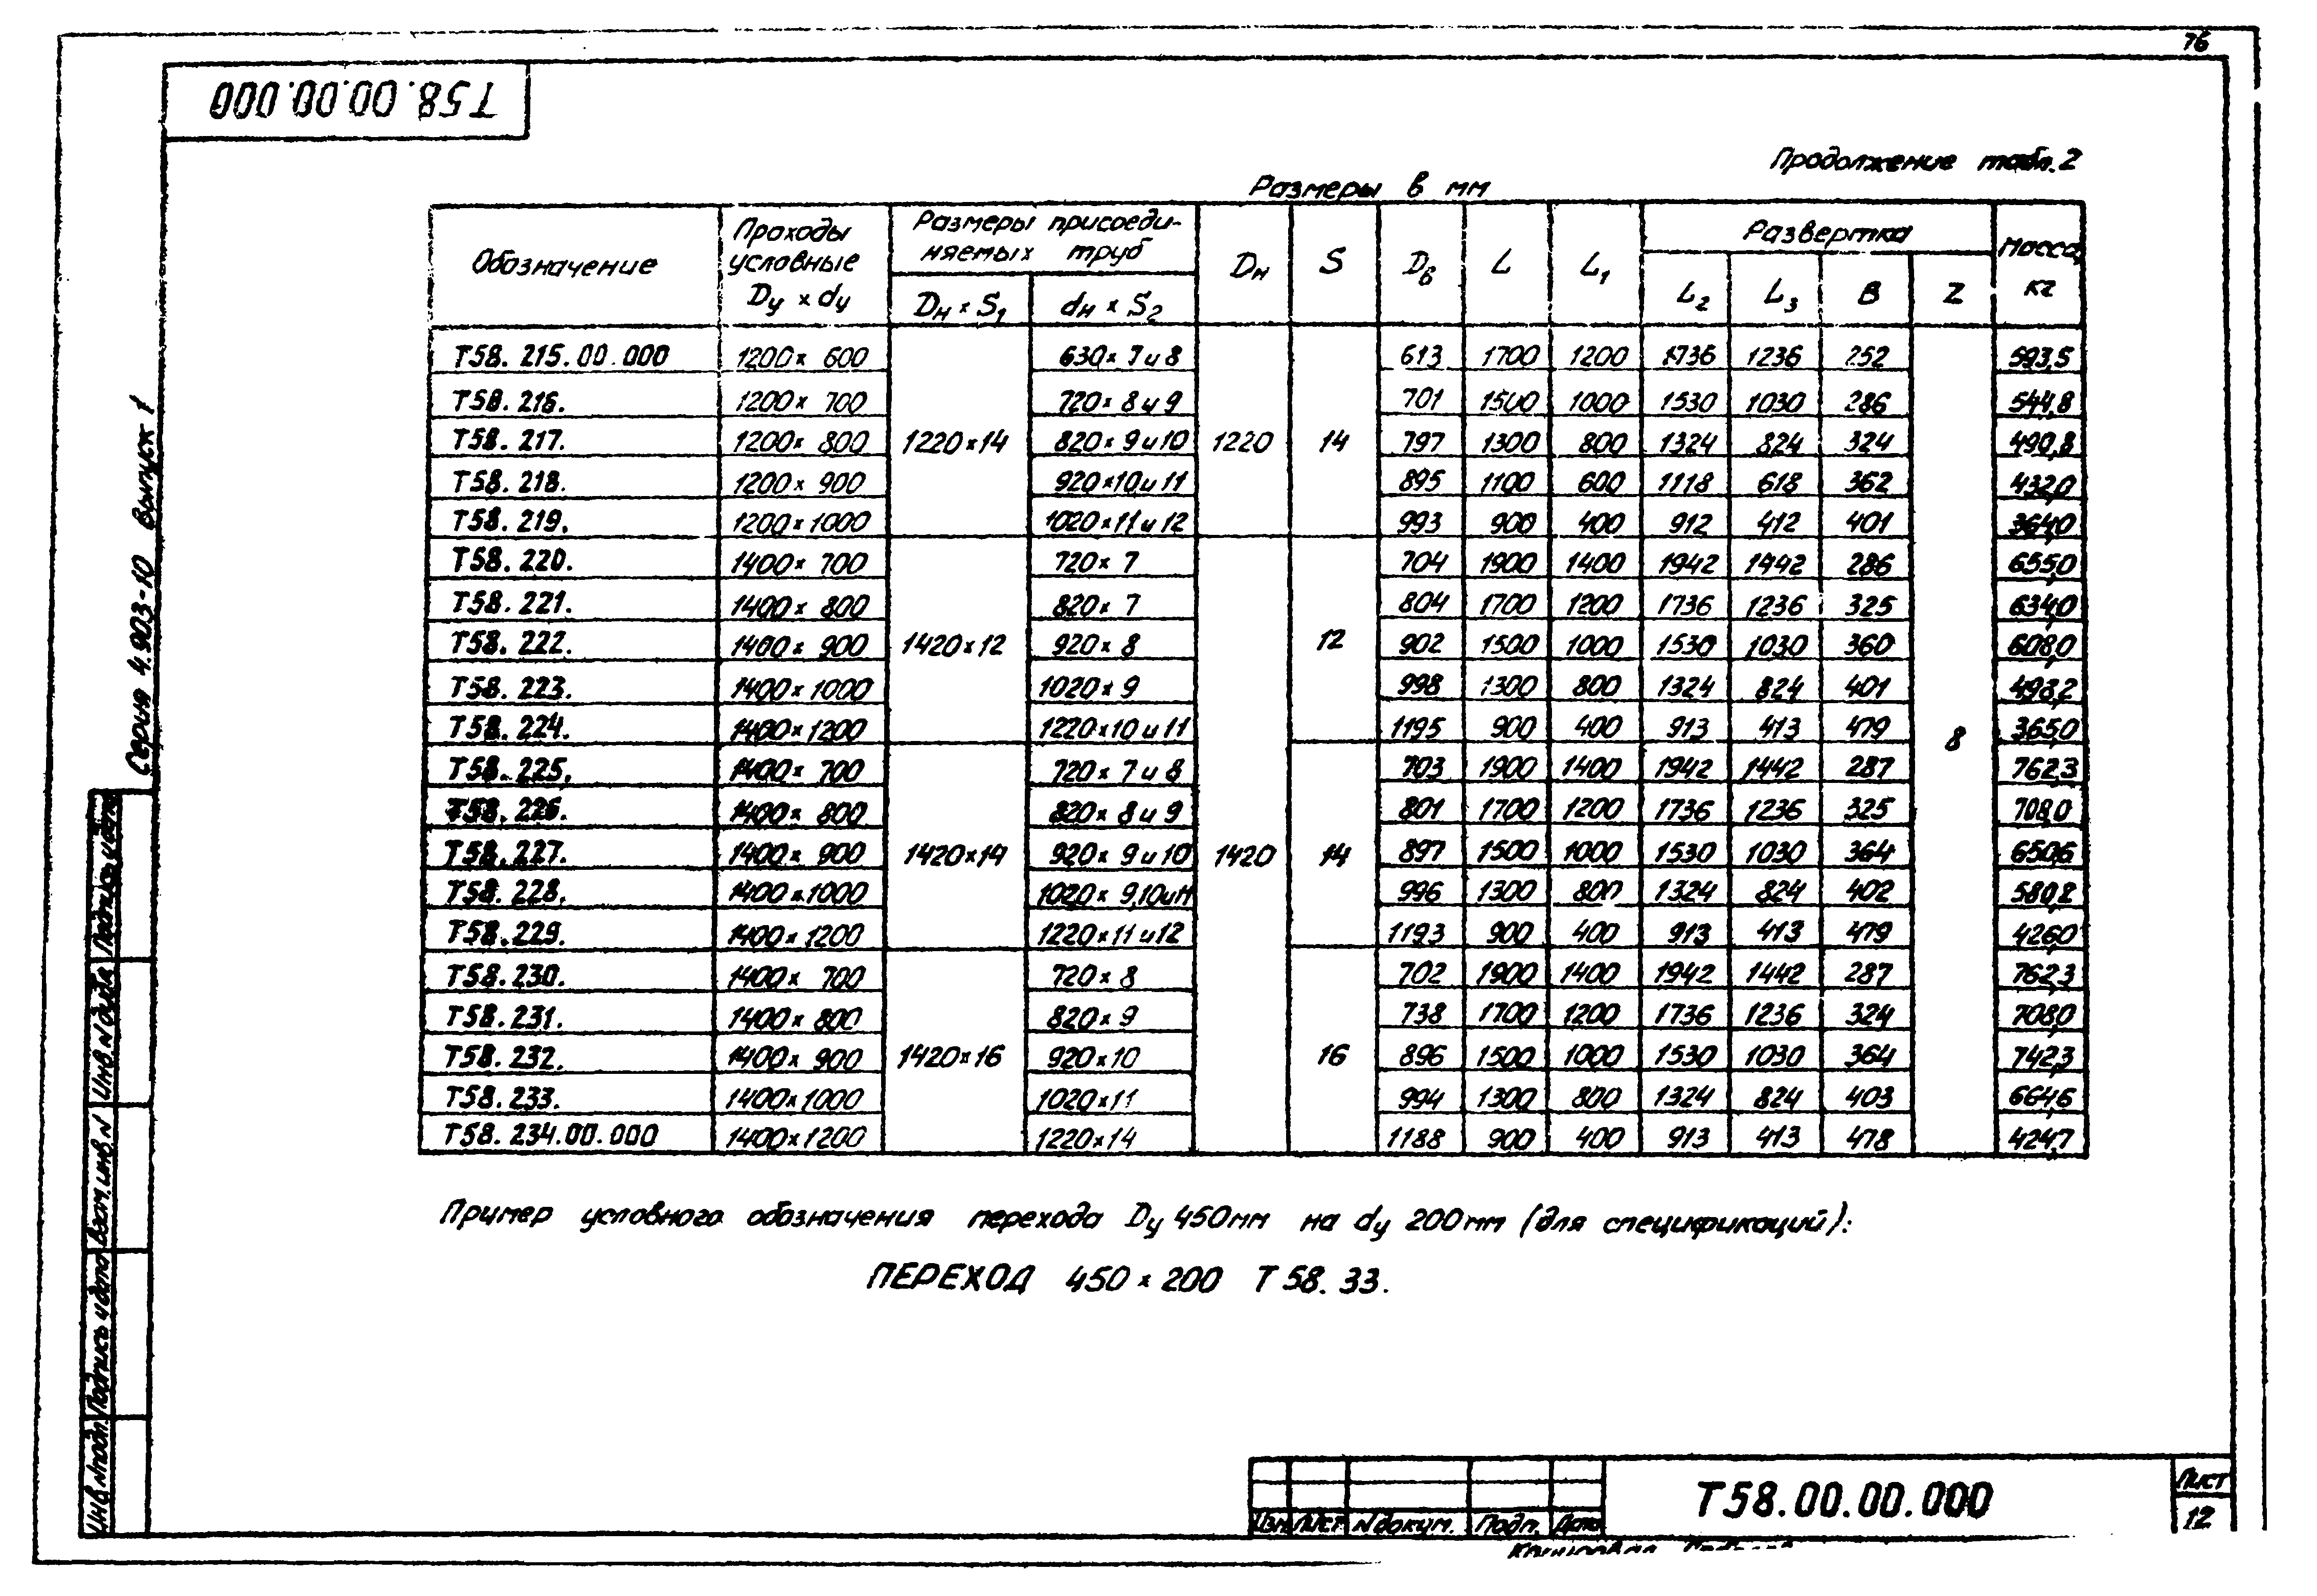 76
Т58.00.00.000
Продолжение табл.2
Размеры в мм
Обозначение | Проходы условные Dу × dу | Размеры присоединяемых труб | Dн | S | Dв | L | L1 | Развертка | Масса, кг
Dн × S1 | dн × S2 | L2 | L3 | B | Z
Т58.215.00.000 | 1200× 600 | 1220×14 | 630× 7 и 8 | 1220 | 14 | 613 | 1700 | 1200 | 1736 | 1236 | 252 | 8 | 593,5
Т58.216. | 1200× 700 | 720× 8 и 9 | 701 | 1500 | 1000 | 1530 | 1030 | 286 | 544,8
Т58.217. | 1200× 800 | 820× 9 и 10 | 797 | 1300 | 800 | 1324 | 824 | 324 | 490,8
Т58.218. | 1200× 900 | 920×10 и 11 | 895 | 1100 | 600 | 1118 | 618 | 362 | 432,0
Т58.219. | 1200×1000 | 1020×11 и 12 | 993 | 900 | 400 | 912 | 412 | 401 | 364,0
Т58.220. | 1400× 700 | 1420×12 | 720× 7 | 1420 | 12 | 704 | 1900 | 1400 | 1942 | 1442 | 286 | 655,0
Т58.221. | 1400× 800 | 820× 7 | 804 | 1700 | 1200 | 1736 | 1236 | 325 | 634,0
Т58.222. | 1400× 900 | 920× 8 | 902 | 1500 | 1000 | 1530 | 1030 | 360 | 608,0
Т58.223. | 1400×1000 | 1020×9 | 998 | 1300 | 800 | 1324 | 824 | 401 | 498,2
Т58.224. | 1400×1200 | 1220×10 и 11 | 1195 | 900 | 400 | 913 | 413 | 479 | 365,0
Т58.225. | 1400× 700 | 1420×14 | 720× 7 и 8 | 14 | 703 | 1900 | 1400 | 1942 | 1442 | 287 | 762,3
Т58.226. | 1400× 800 | 820× 8 и 9 | 801 | 1700 | 1200 | 1736 | 1236 | 325 | 708,0
Т58.227. | 1400× 900 | 920× 9 и 10 | 897 | 1500 | 1000 | 1530 | 1030 | 364 | 650,6
Т58.228. | 1400×1000 | 1020× 9,10 и 11 | 996 | 1300 | 800 | 1324 | 824 | 402 | 580,2
Т58.229. | 1400×1200 | 1220×11 и 12 | 1193 | 900 | 400 | 913 | 413 | 479 | 426,0
Т58.230. | 1400× 700 | 1420×16 | 720×8 | 16 | 702 | 1900 | 1400 | 1942 | 1442 | 287 | 762,3
Т58.231. | 1400× 800 | 820×9 | 738 | 1700 | 1200 | 1736 | 1236 | 324 | 708,0
Т58.232. | 1400× 900 | 920×10 | 896 | 1500 | 1000 | 1530 | 1030 | 364 | 742,3
Т58.233. | 1400×1000 | 1020×11 | 994 | 1300 | 800 | 1324 | 824 | 403 | 664,6
Т58.234.00.000 | 1400×1200 | 1220×14 | 1188 | 900 | 400 | 913 | 413 | 478 | 424,7
Пример условного обозначения перехода Dу 450мм на dу 200мм (для спецификаций):
ПЕРЕХОД 450×200 Т 58. 33.
Серия 4.903-10 Выпуск 1
Подпись и дата
Инв.N дубл.
Взам.инв.N
Подпись и дата
Инв.N подл.
Изм Лист N докум. Подп. Дата
Т58.00.00.000
Лист
12
Копировал